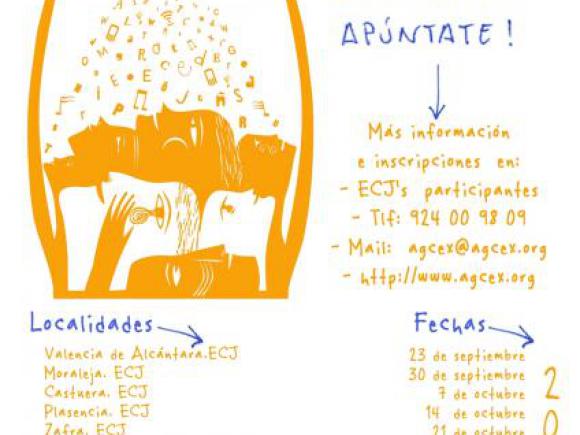 APÚNTATE !
Más información
e inscripciones en:
- ECJ's participantes
- Tlf: 924 00 98 09
- Mail: agcex@agcex.org
- http://www.agcex.org
Localidades
Valencia de Alcántara.ECJ
Moraleja. ECJ
Castuera. ECJ
Plasencia. ECJ
Zafra. ECJ
Fechas
23 de septiembre
30 de septiembre
7 de octubre
14 de octubre
21 de octubre
2
0